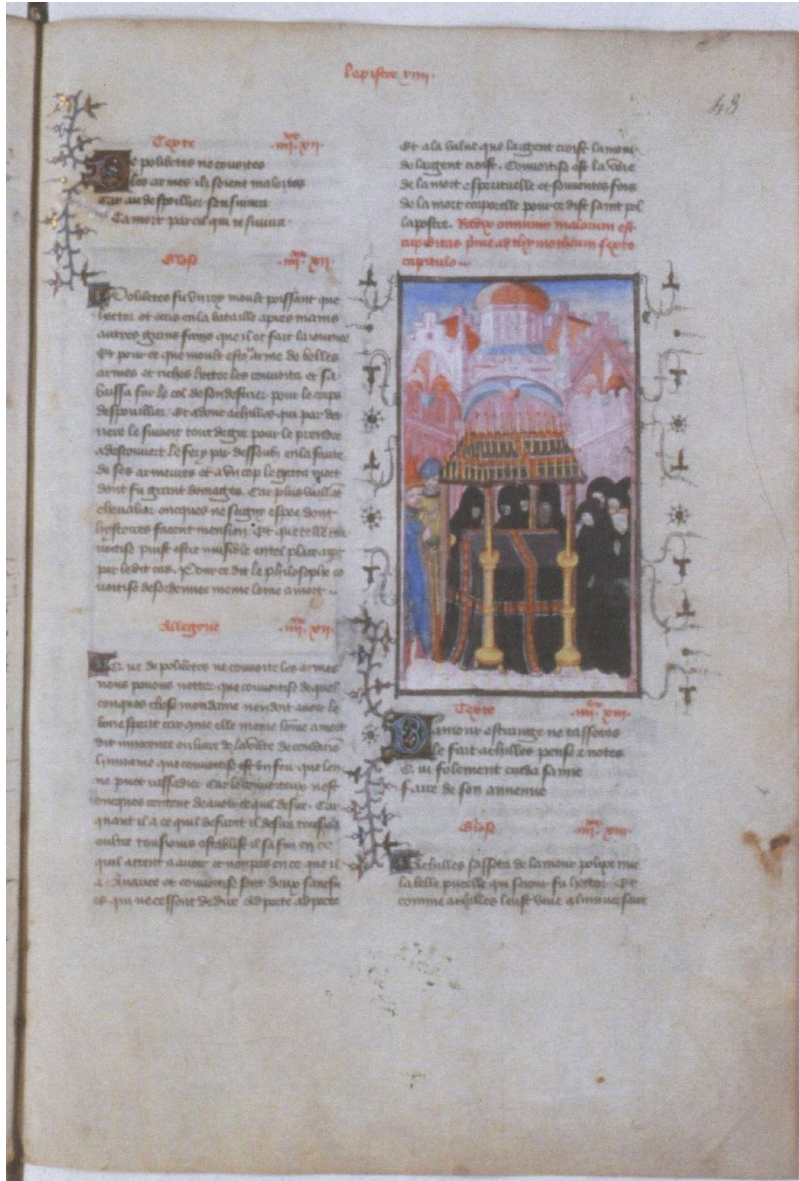 lepistre
48
Texte .iiii. xii.
De polibetes ne couoites
les armes ilz soient maloites
Car au despoillier sensuiura
Ta mort par cil qui te suiura
Glose .iiii. xii.
Polibetes fu vn roy moult poissant que
hector ot occis en la bataille apres mains
autres grans fais que il ot fait la iournee
Et pour ce que moult estoit arme de belles
armes et riches hector les couuoita et sa
baissa sur le col de son destrier pour le corps
despoullier. Et adont achilles qui par der
riere le suiuoit tout de gre pour le prendre
a descouuert le fery par dessoubz en la faute
de ses armeures et a vn cop le getta mort
dont fu grant domages. Car plus vaillant
cheualier oncques ne sainy espee dont
hystoires facent mension. Et que telle cou
uoitise puist estre nuisible en tel place apert
par le dit cas. Pour ce dit le philosophe co
uoitise desordennee meine lome a mort
Allegorie .iiii. xii.
Que de polibetes ne couoite les armes
nous pouons notter que couuoitise de quel
conques chose mondaine ne doit auoir le
bon esperit car que elle meine lome a mort
dit innocence ou liure de la vilte de condicion
humaine que couuoitise est vn feu que len
ne puet rassadier. Car le couuoiteux nest
oncques content de auoir ce quil desire. Car
quant il a ce quil desiroit il desire tousiours
oultre tousiours establist il sa fin en ce
quil attent a auoir et non pas en ce que il
a. Auarice et couuoitise sont deux sansu
es qui ne cessent de dire aporte aporte
Et a la value que largent croist lamour
de largent croist. Couuoitise est la voie
de la mort esperituelle et souuentes fois
de la mort corporelle pour ce dist saint pol
lapostre. Radix omnium malorum est
cupiditas prime ad thymotheum sexto
capitulo
Texte .iiii. xiii.
Damour estrange ne tassotes
le fait achilles pense et notes
Qui folement cuida samie
faire de son annemie
Glose .iiii. xiii.
Achilles sassota de lamour polixene
la belle pucelle qui seour fu hector. Et
comme achilles leust veue a lanniuersaire